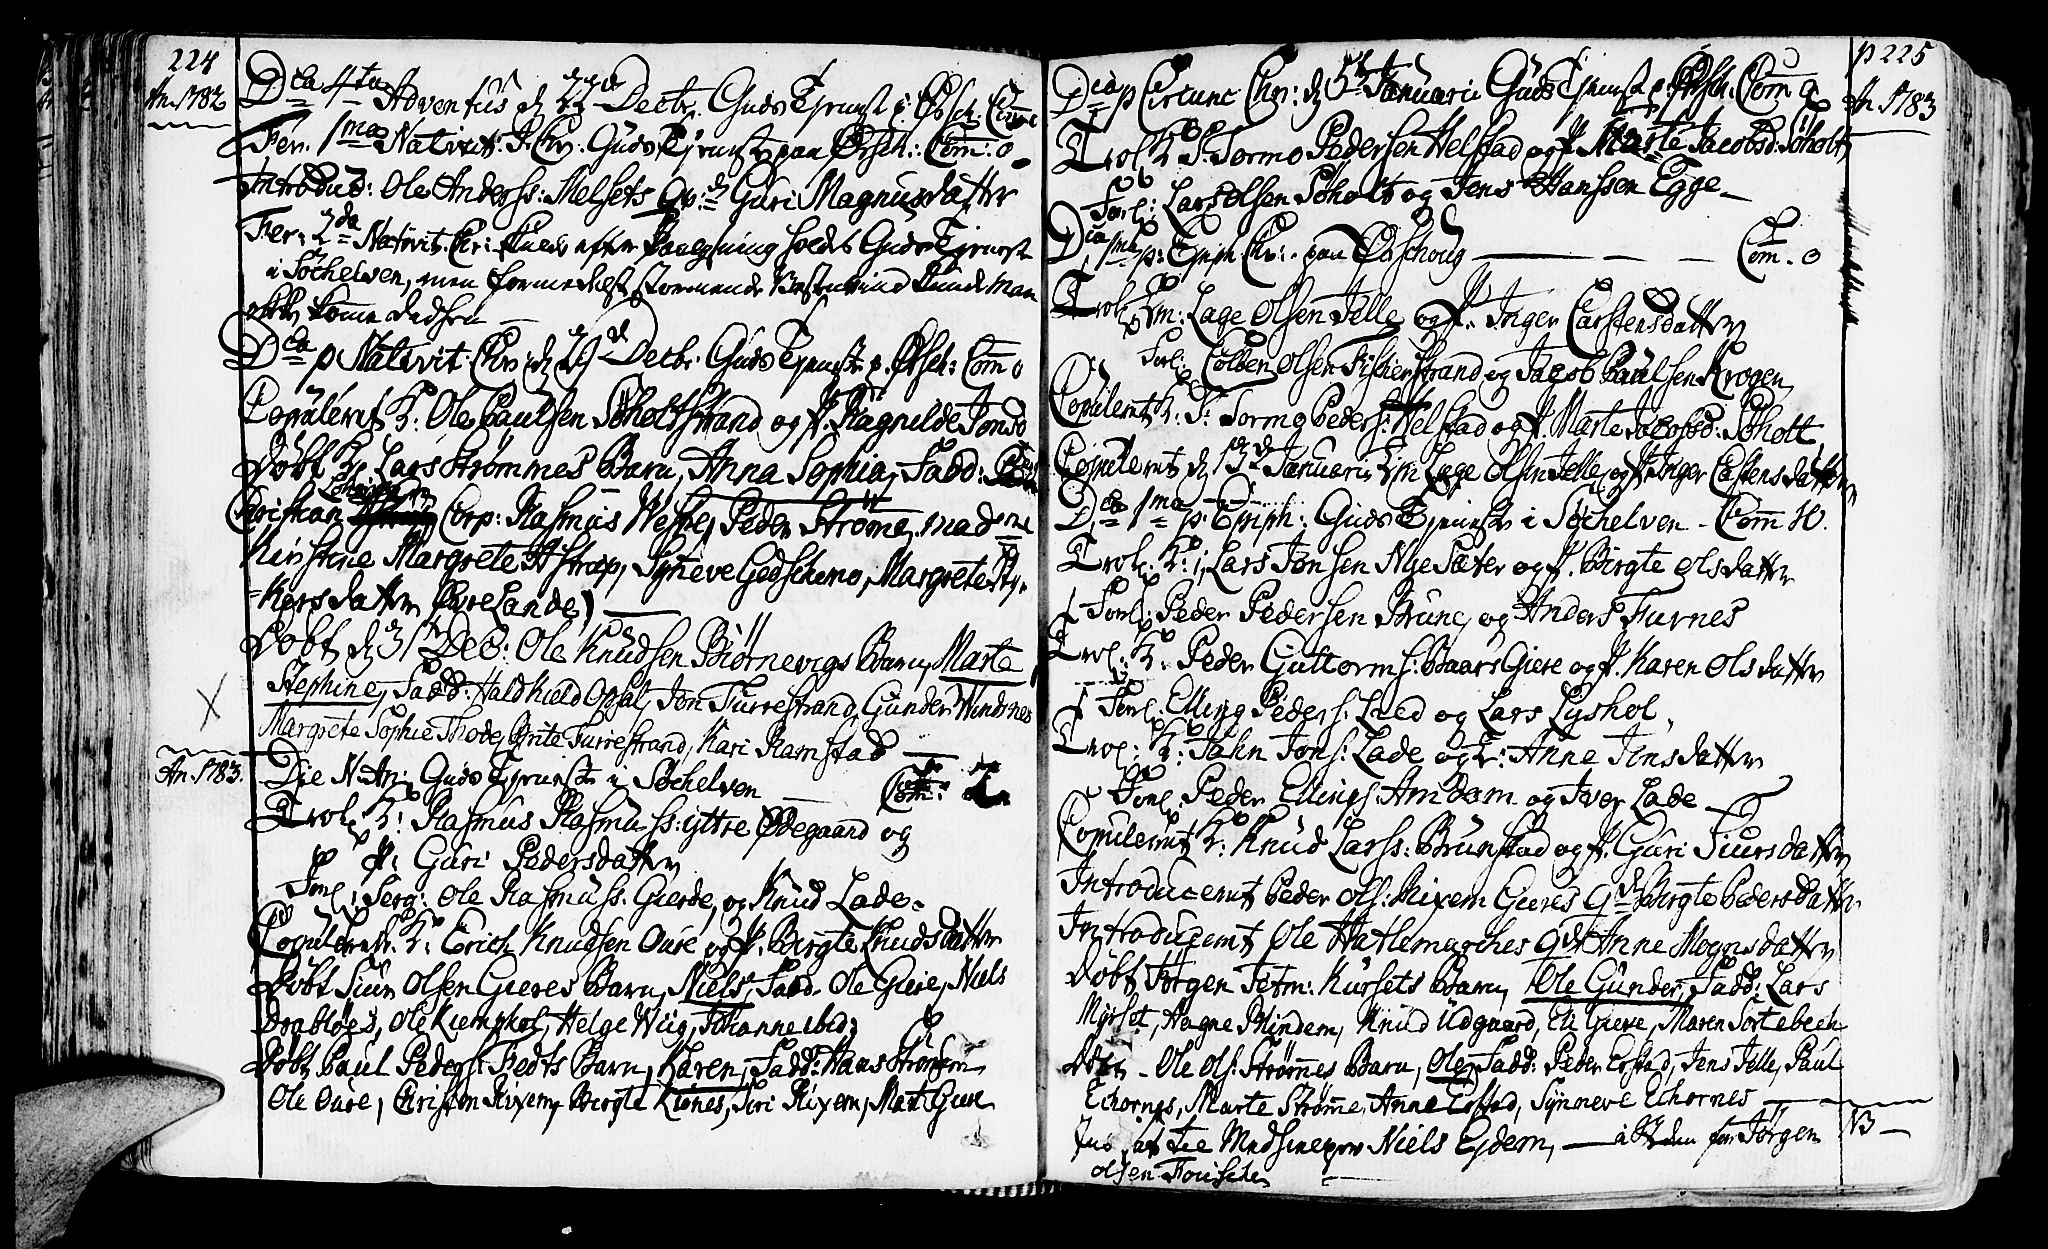 224
An. 1782
Dca 4ta Adventus d 22 Decbr. Guds Tjenest p. Ørsch: Com
Fer. 1ma Nativit. J. Chr. Guds Tjenest paa Ørsch: Com: o
Introdud: Ole Anderss: Melsets Qv: Guri Magnusdatter
Fer. 2da Nativit. Chr: skulde efter holdt Guds Tjenest
i Søchelven, men formedelst stormende Vind kunde man
ikke komme
Dca p Nativit: Chr: d 29d Decbr. Guds Tjenest p. Ørsch: Com o
Copuleret K: Ole Paulsen Søholtstrand og P. Ragnilde Jonsd
Døbt K. Lars Strømmes Barn, Anna Sophia, Fadd:
Christian Corp: Rasmus Westre, Peder Strøme, mad
Kirstene Margrete Astrop, Synneve Gedscheno, Margrete
Kersdatter Øvrelande)
Døbt d 31 Dec: Ole Knudsen Biørnevigs Barn, Marte
Stephine, Fadd: Haldkield Opsal, Jon Furrestrand, Gunder Windsnes
Margrete Sophie Thode, Brite Furrestrand, Kari Ramstad
X
An. 1783.
Die N. An: Guds Tjeneste i Søchelven — Com:
Trol. K: Rasmus Rasmuss: yttre Ødegaard og
P: Guri Pedersdatter
Forl: Serg: Ole Rasmuss: Gierde, og Knud Lade.
Copuleret K: Erich Knudsen Oure og P. Birgte Knudsdatter
Døbt Siur Olsen Gieres Barn, Niels, Fadd. Ole Giere, Niels
Drabløes, Ole Kiemphol, Helge Wiig, Johanne ibid:
Døbt Paul Peders: Fedts Barn, Karen, Fadd: Hans Strømen
Ole Oure, Christen Rixem, Birgte Kiønes, Siri Rixem, Mari Giere
p 225
An 1783
Dca p Circumc Chr: d 5t Januarii Guds Tjenest p. Ørsch: Com o
Trol K S: Tormo Pedersen Helstad og P Marte Jacobsd: Søholt
Forl: Lars Olsen Søholt og Jens Hanssen Egge
Dca 1ma p: Epiph. Chr: paa Ørschoug — Com. o
Trol: Em: Lage Olsen Jelle og P. Inger Carstensdatter
Forl: Colben Olsen Fischerstrand og Jacob Paulsen Krogen
Copuleret K: S: Tormo Peders: Helstad og P. Marte Jacobsd: Søholt
Copuleret d 13d Januarii Em Lage Olsen Jelle og P. Inger Castensdatter
Dca 1ma p. Epiph: Guds Tjeneste i Søchelven - Com 10.
Trol. K: Lars Jonsen Nysæter og P. Birgte Olsdatter
Forl: Peder Pedersen Brune, og Anders Furnes
Trol: K. Peder Guttorms: Baars Giere og P. Karen Olsdatter
Forl. Elling Peders: Lied og Lars Lyshol,
Trol: K: Jahn Jons: Lade og P: Anne Jensdatter
Forl. Peder Ellings: Amdam og Iver Lade
Copuleret K: Knud Larss: Brunstad og P. Guri Siursdatter
Introduceret Peder Ols: Rixem Gieres Qd Birgte Pedersdatter
Introduceret Ole Hatlemarches Qd Anne Mognsdatter
Døbt Jørgen Jetm: Kursets Barn, Ole Gunder, Fadd: Lars
Myrset, Hagne Rindem, Knud Udgaard, Eli Gieve, Maren Sortebech
Døbt - Ole Ols: Strømes Barn, Ole, Fadd: Peder Erstad, Jens Jelle, Paul
Echornes, Marte Strøme, Anne Erstad, Synneve Echornes —
Niels Ejdem, — Steden for Jørgen
NB —
olsen